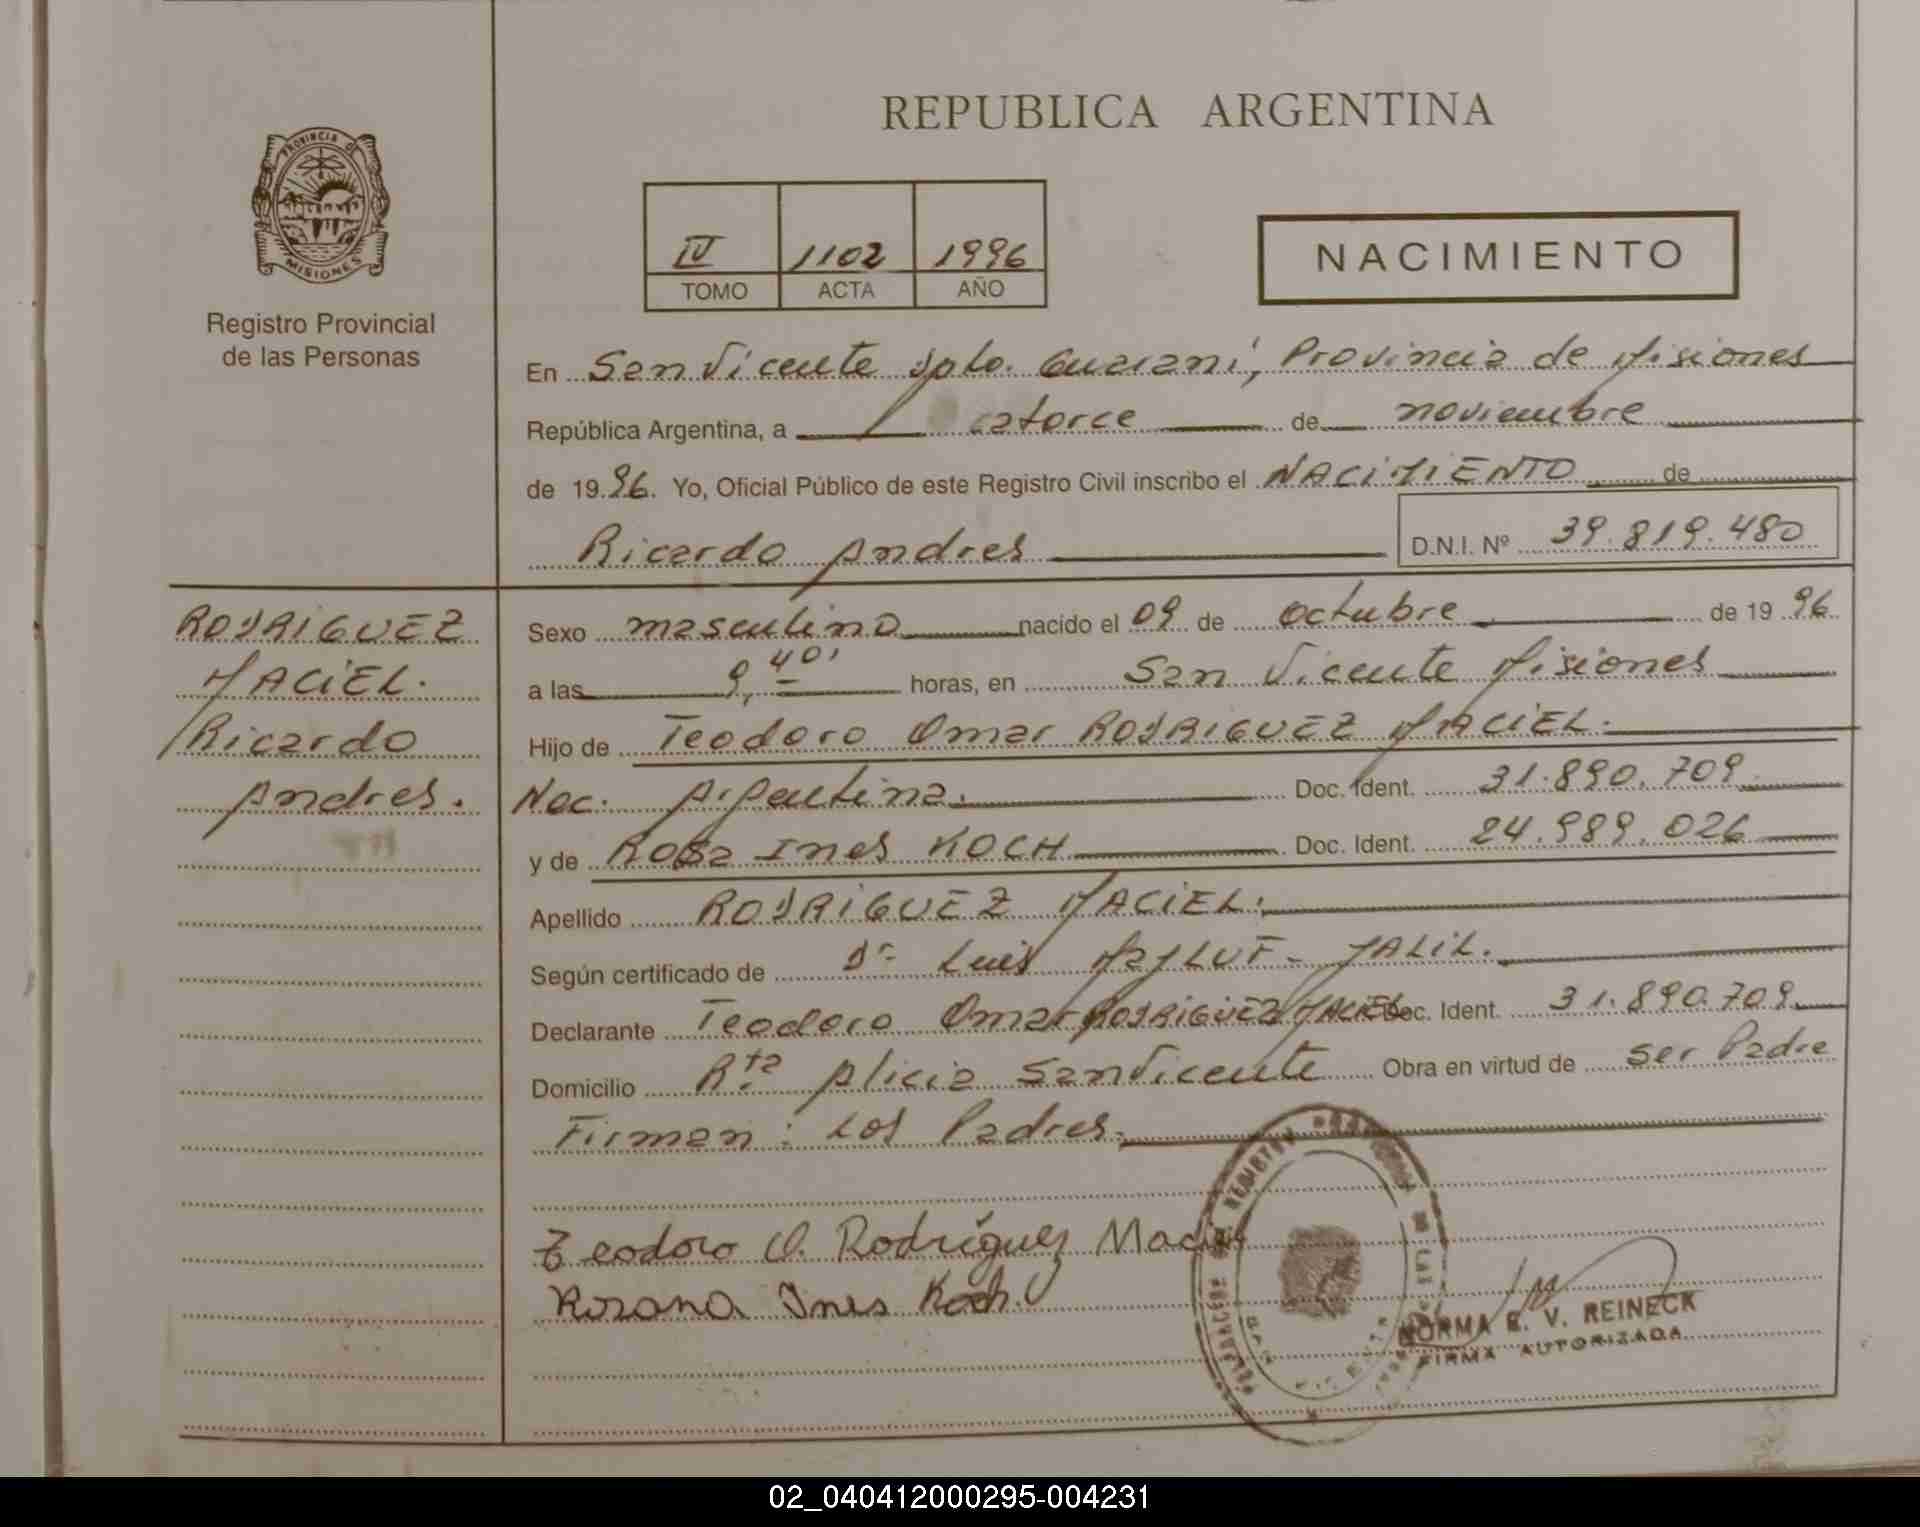 REPUBLICA ARGENTINA
PROVINCIA DE
MISIONES
Registro Provincial
de las Personas
IV 1102 1996
TOMO ACTA AÑO
NACIMIENTO
En San Vicente Dpto. Guarani, Provincia de Misiones
República Argentina, a catorce de noviembre
de 19 96. Yo, Oficial Público de este Registro Civil inscribo el NACIMIENTO de
Ricardo Andres D.N.I. Nº 39.819.480
RODRIGUEZ
MACIEL.
Ricardo
Andres.
Sexo masculino nacido el 09 de octubre de 19 96
a las 9,40' horas, en San Vicente Misiones
Hijo de Teodoro Omar RODRIGUEZ MACIEL.
Nac. Argentina. Doc. Ident. 31.890.709
y de Rosa Ines KOCH Doc. Ident. 24.989.026
Apellido RODRIGUEZ MACIEL.
Según certificado de Dr. Luis JALIL.
Declarante Teodoro Omar RODRIGUEZ MACIEL Doc. Ident. 31.890.709
Domicilio Rta Alicia San Vicente Obra en virtud de ser Padre
Firman: Los Padres.
Teodoro O. Rodríguez Maciel
Rosana Ines Koch.
NORMA E. V. REINECK
FIRMA AUTORIZADA
02_040412000295-004231